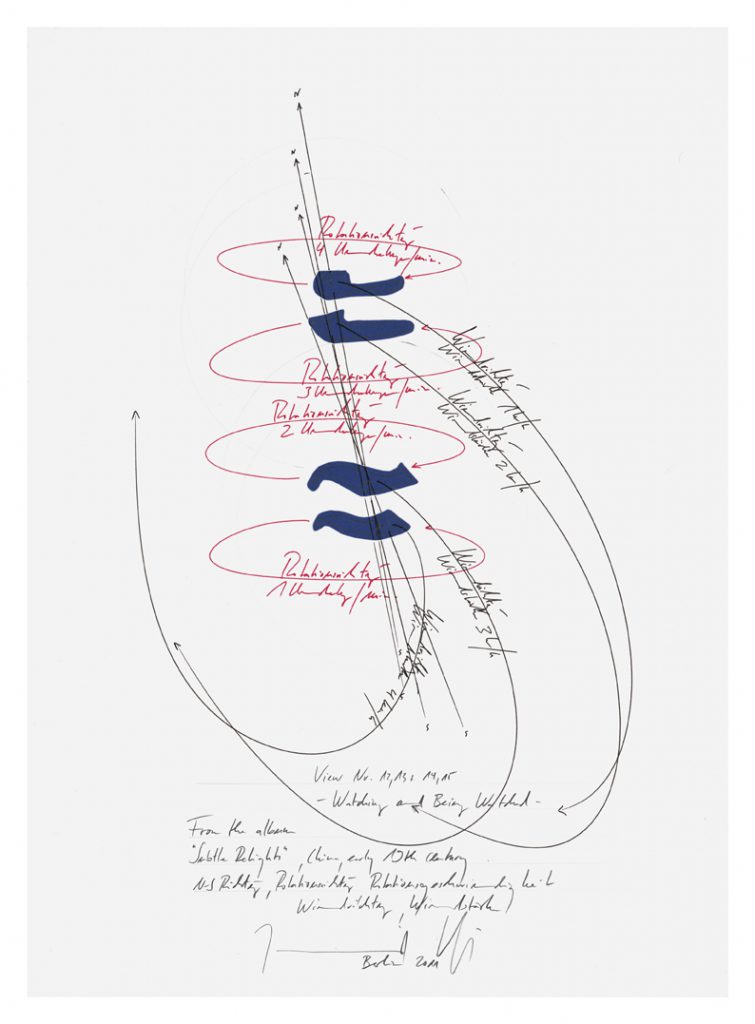 N
N
N
N
Rotationsrichtung
4 Umdrehungen/min.
Rotationsrichtung
3 Umdrehungen/min.
Rotationsrichtung
2 Umdrehungen/min.
Rotationsrichtung
1 Umdrehung/min.
Windrichtung
Windstärke
Windrichtung
Windstärke 2
Windrichtung
Windstärke 3
Windrichtung
Windstärke
S
S
View No. 12, 13 & 14, 15
- Watching and Being Watched -
From the album
"Subtle Delights", China, early 19th century
N-S Richtung, Rotationsrichtung, Rotationsgeschwindigkeit
Windrichtung, Windstärke
Berlin 2011